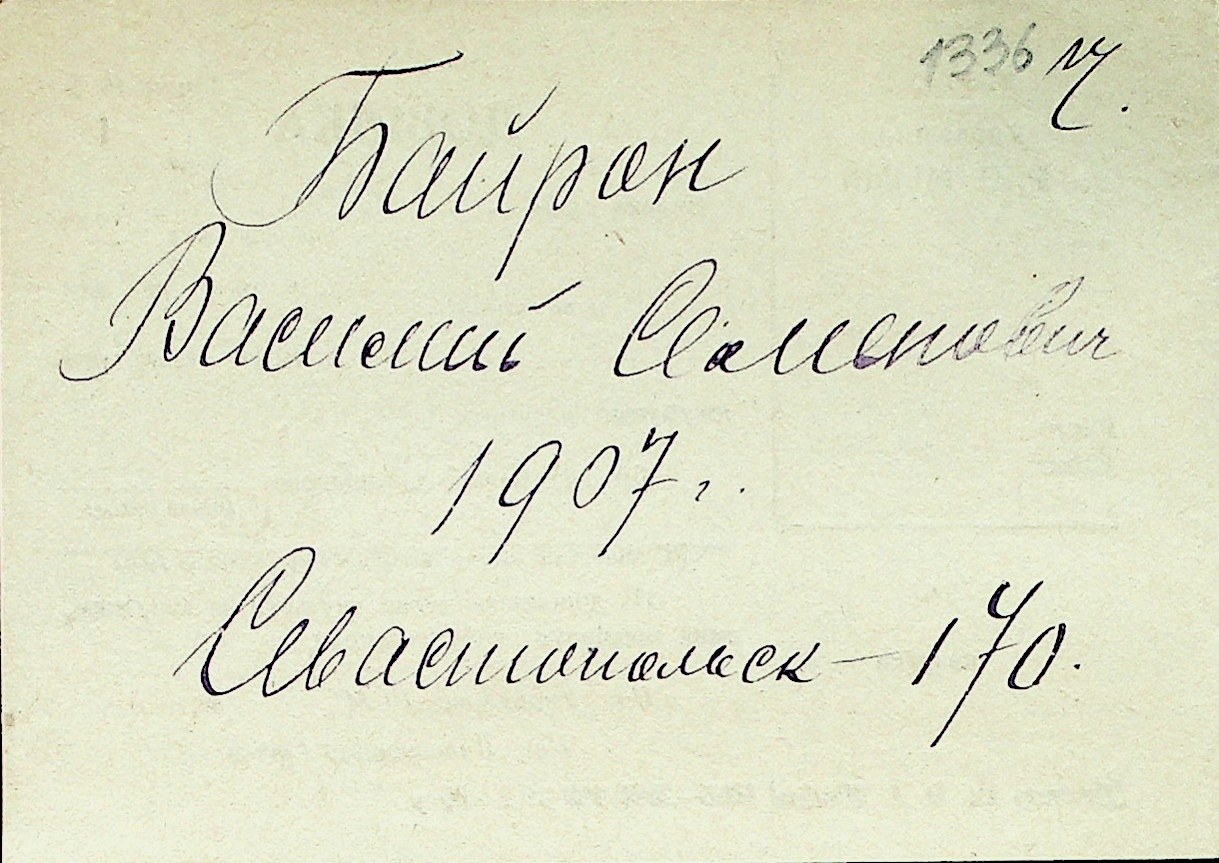 1336 ч.
Байрон
Василий Семенович
1907 г.
Севастопольск – 170.